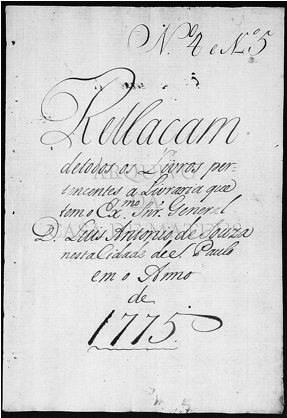 N.º 4 e N.º 5
Rellaçam
detodos os Livros per-
tencentes a Livraria que
tem o Ex.mo Snr. General
D. Luis Antonio de Souza
nesta Cidade de S. Paulo
em o Anno
de
1775.